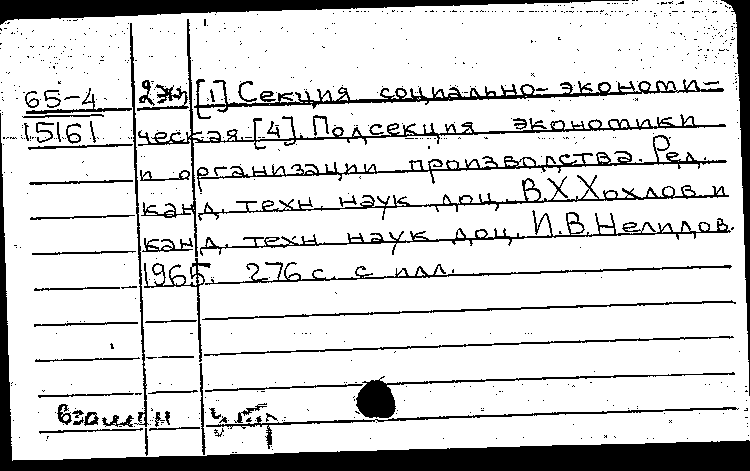 65-4 2экз [1] Секция социально-экономи-
15161 ческая. [4]. Подсекция экономики
и организации производства. Ред.
канд. техн. наук доц. В.Х.Хохлов и
канд. техн. наук доц. И.В.Нелидов.
1965. 276 с. с илл.
взамен